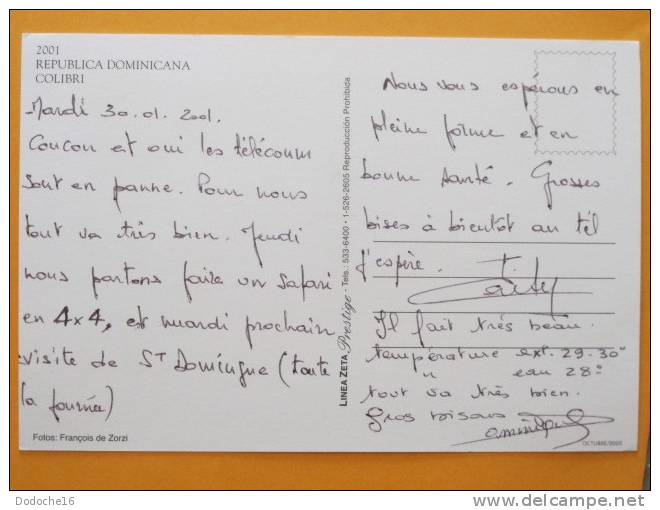 2001
REPUBLICA DOMINICANA
COLIBRI
Mardi 30.01.2001.
Coucou et oui les télécoum
sont en panne. Pour nous
tout va très bien. Jeudi
nous partons faire un safari
en 4x4, et mardi prochain
visite de ST Domingue (toute
la journée)
Fotos: François de Zorzi
LINEA ZETA Prestige - Tels.: 533-6400 • 1-526-2605 Reproducción Prohibida
Nous vous espérons en
pleine forme et en
bonne santé. Grosses
bises à bientôt au tél
j'espère.
Il fait très beau.
température ext. 29-30°
" eau 28°
tout va très bien.
Gros bisous
OCTUBRE/2000
Dodoche16
delcampe.net